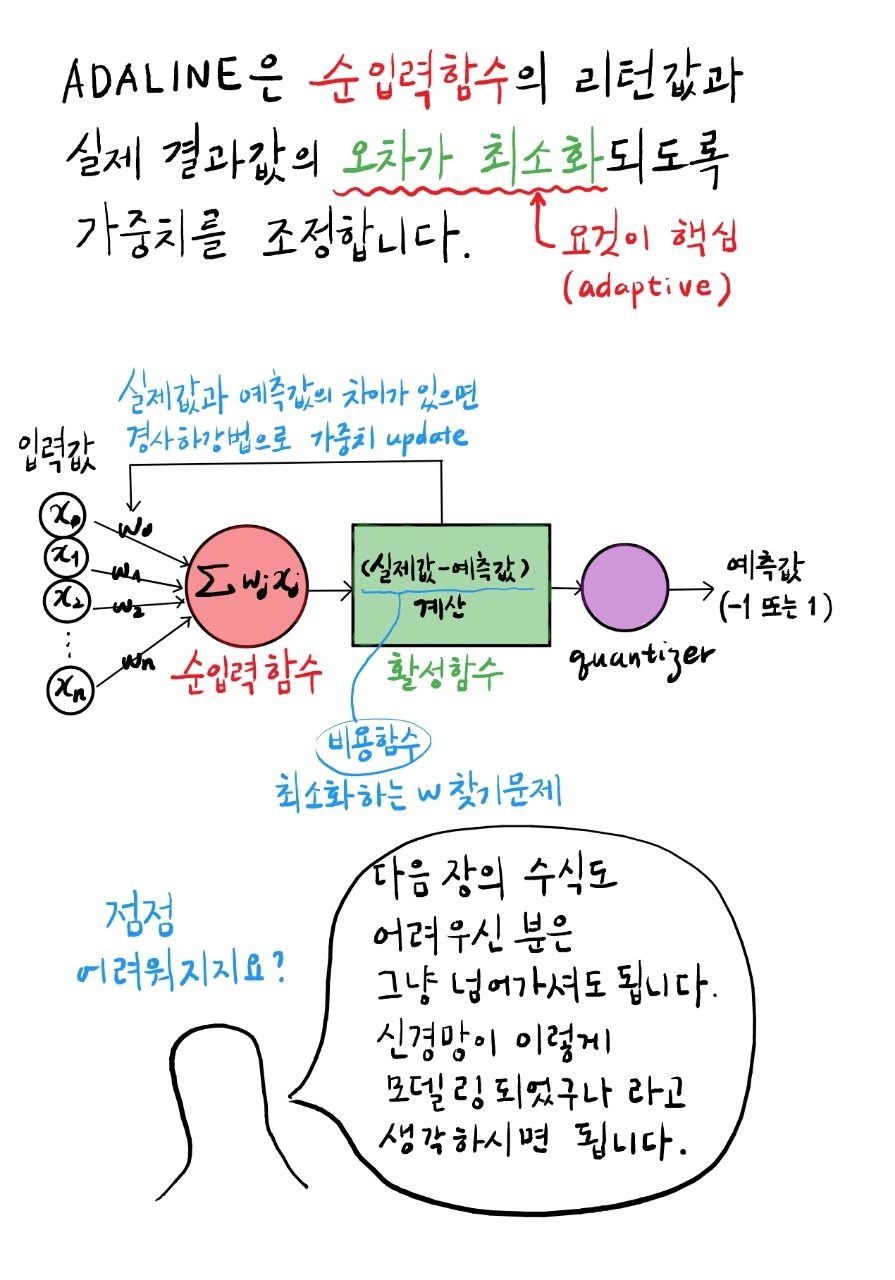 ADALINE은 순입력함수의 리턴값과
실제 결과값의 오차가 최소화되도록
가중치를 조정합니다.
요것이 핵심
(adaptive)
실제값과 예측값의 차이가 있으면
경사하강법으로 가중치 update
입력값
x₀
x₁
x₂
⋮
xₙ
w₀
w₁
w₂
wₙ
∑ wⱼxⱼ
순입력함수
(실제값-예측값)
계산
활성함수
quantizer
예측값
(-1 또는 1)
비용함수
최소화하는 w 찾기문제
점점
어려워지지요?
다음 장의 수식도
어려우신 분은
그냥 넘어가셔도 됩니다.
신경망이 이렇게
모델링되었구나 라고
생각하시면 됩니다.